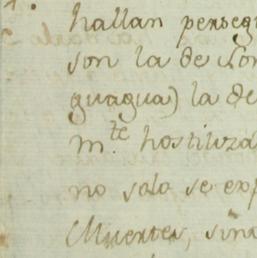 1.
hallan perseg
son la de Lon
guagua) la de
m.te hostiliza
no solo se exp
Muertes, sino